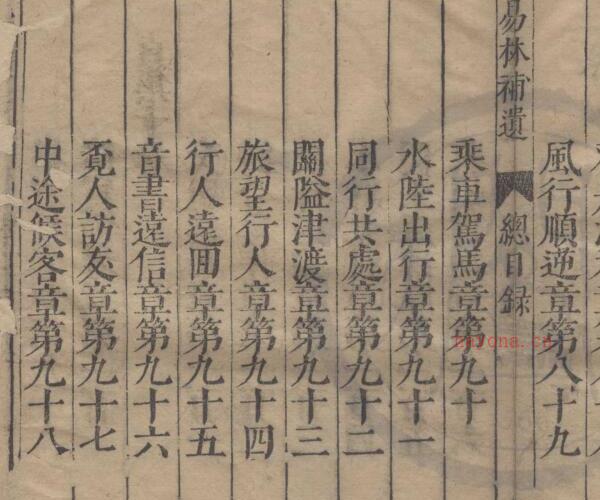 風行順逆章第八十九
易林補遺
總目録
乘車駕馬章第九十
水陸出行章第九十一
同行共處章第九十二
關隘津渡章第九十三
旅望行人章第九十四
行人遠囬章第九十五
音書遠信章第九十六
覔人訪友章第九十七
中途候客章第九十八